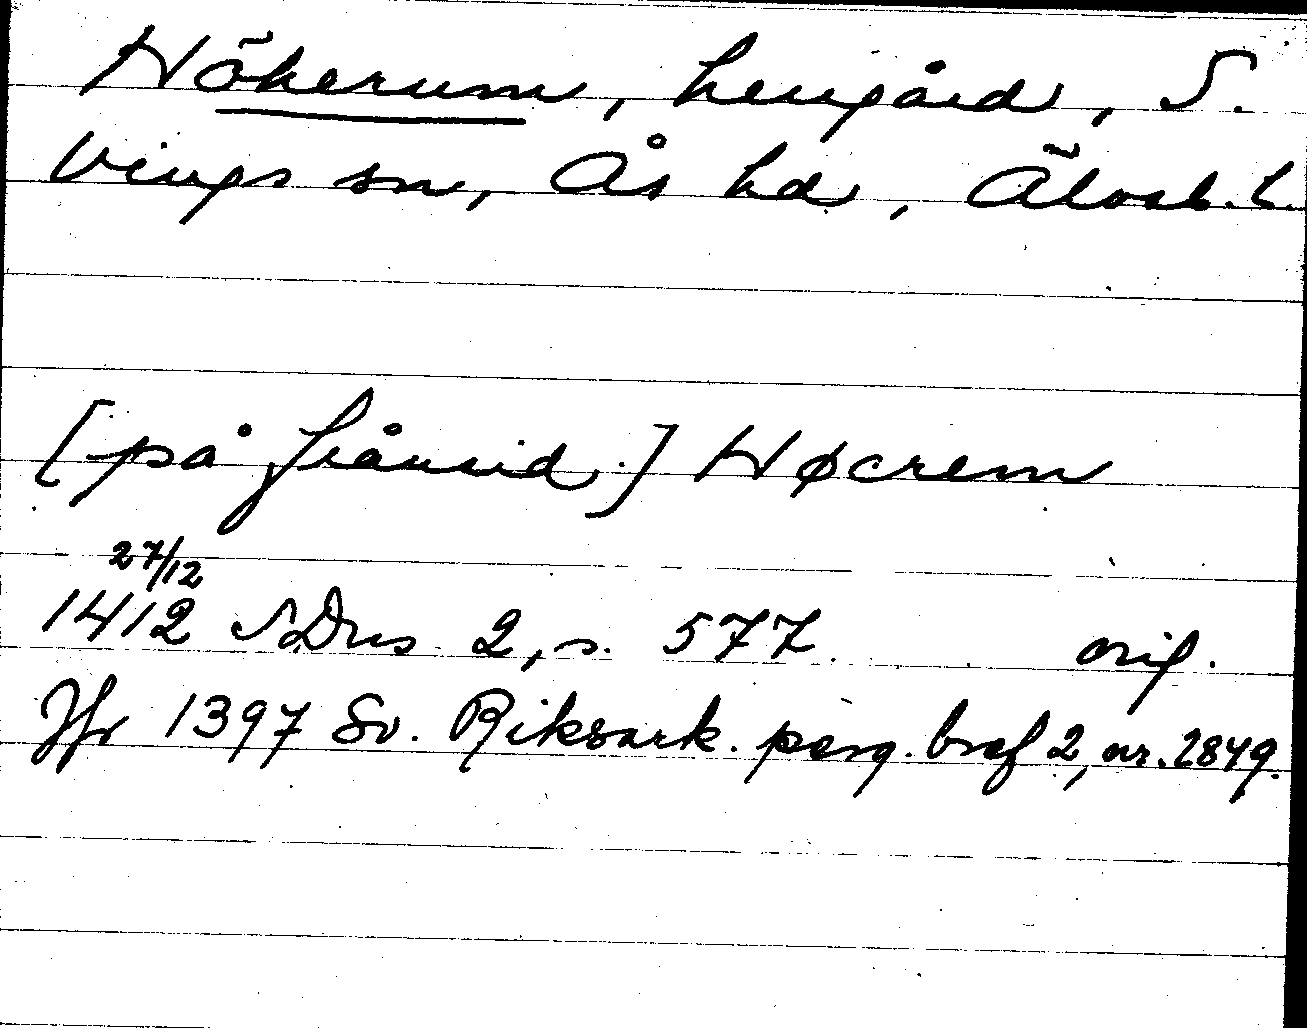 Hökerum, herrgård, S.
Vings sn, Ås hd, Älvsb. l.
[på frånsid.] Høcrem
27/12
1412 SDns 2, s. 577. orig.
Jfr 1397 Sv. Riksark. perg. bref 2, nr. 2849.